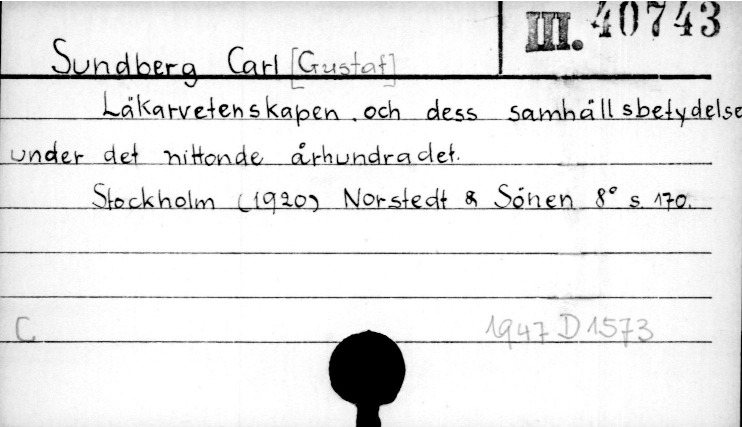 III. 40743
Sundberg Carl [Gustaf]
Läkarvetenskapen och dess samhällsbetydelse
under det nittonde århundradet.
Stockholm (1920) Norstedt & Sönen 8° s. 170.
C 1947 D 1573